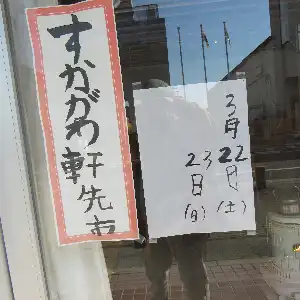 すかがわ軒先市
3月22日(土)
23日(日)